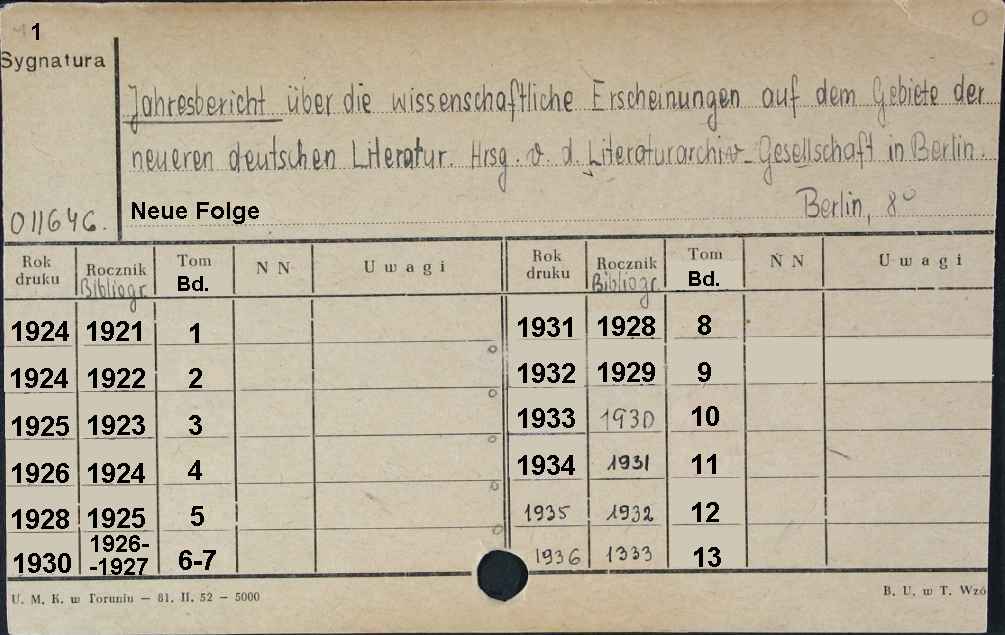 1
Sygnatura
Jahresbericht über die wissenschaftliche Erscheinungen auf dem Gebiete der
neueren deutschen Literatur. Hrsg. v. d. Literaturarchiv-Gesellschaft in Berlin.
011646. Neue Folge Berlin, 8°
Rok druku Rocznik Bibliogr. Tom Bd. N N Uwagi Rok druku Rocznik Bibliogr. Tom Bd. N N Uwagi
1924 1921 1 1931 1928 8
1924 1922 2 1932 1929 9
1925 1923 3 1933 1930 10
1926 1924 4 1934 1931 11
1928 1925 5 1935 1932 12
1930 1926-
-1927 6-7 1936 1333 13
U. M. K. w Toruniu — 81. II. 52 — 5000 B. U. w T. Wzó